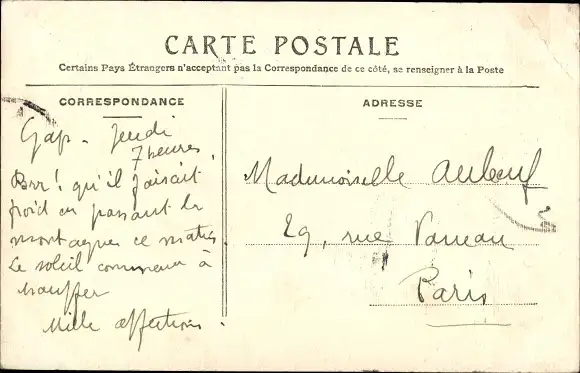 CARTE POSTALE
Certains Pays Étrangers n'acceptent pas la Correspondance de ce côté, se renseigner à la Poste
CORRESPONDANCE
Gap. Jeudi
7 heures.
Brr! qu'il faisait
froid en passant la
montagne ce matin.
Le soleil commence à
chauffer
Mille affections.
ADRESSE
Mademoiselle
29, rue Vaneau
Paris